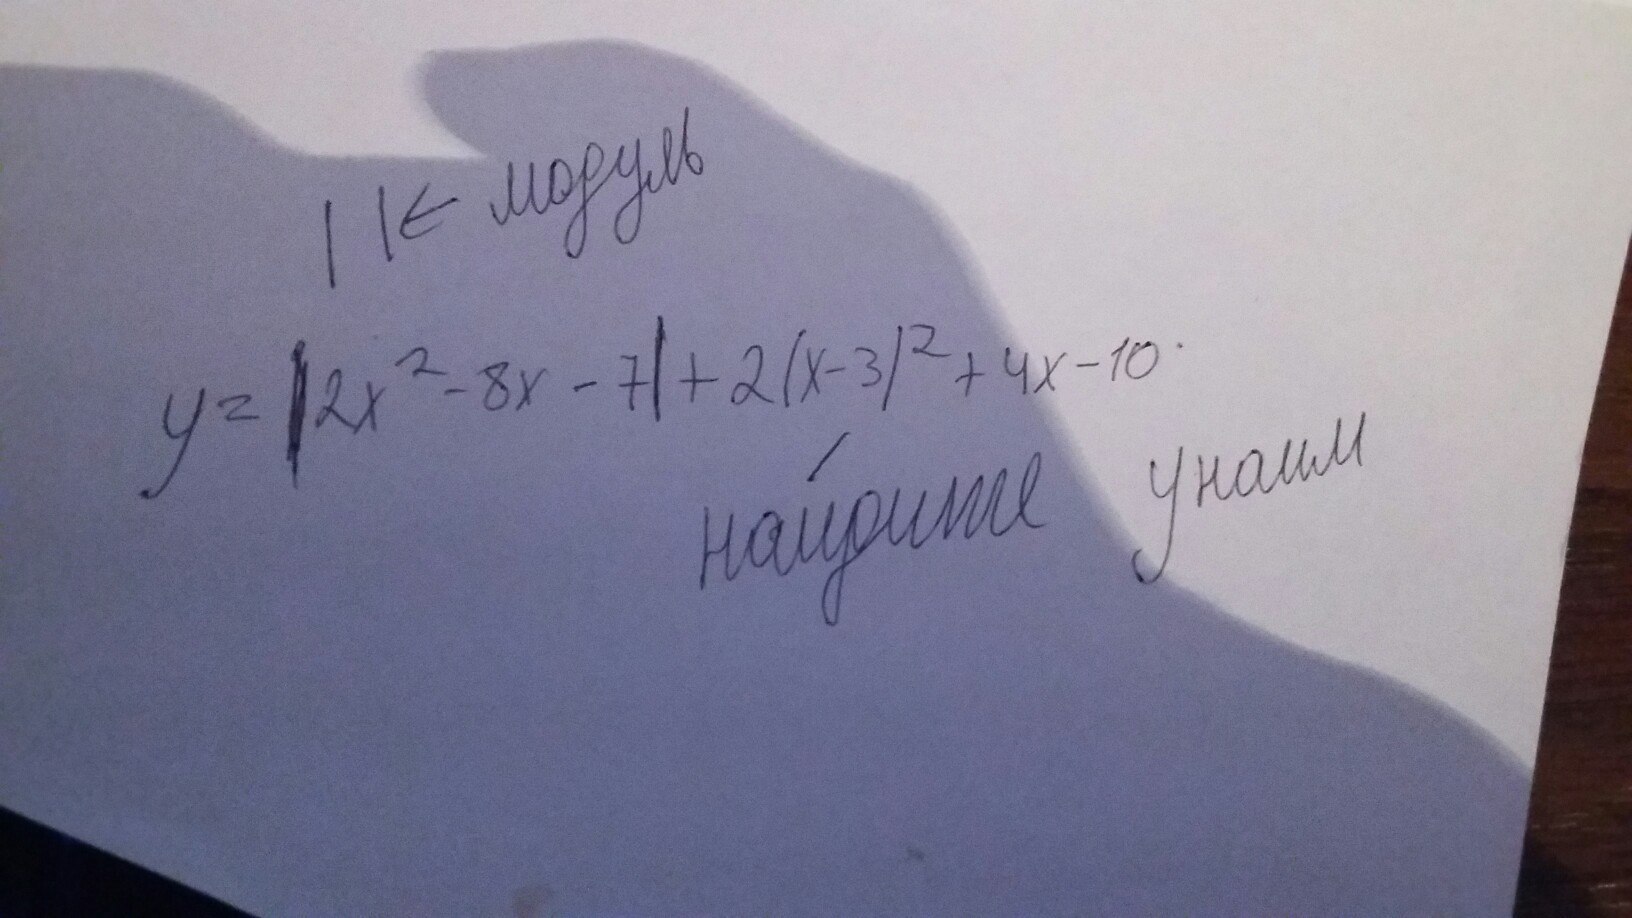 | | ← модуль
y = |2x² - 8x - 7| + 2(x-3)² + 4x - 10.
найдите y наим